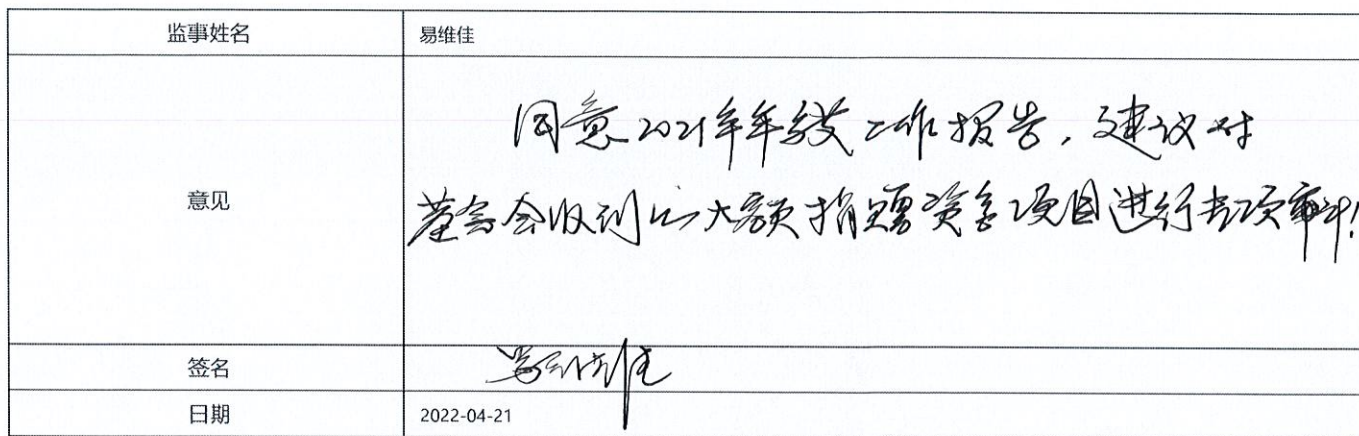 监事姓名 易维佳
意见
同意2021年年度工作报告,建议对
基金会收到的大额捐赠资金项目进行专项审计!
签名 易维佳
日期 2022-04-21